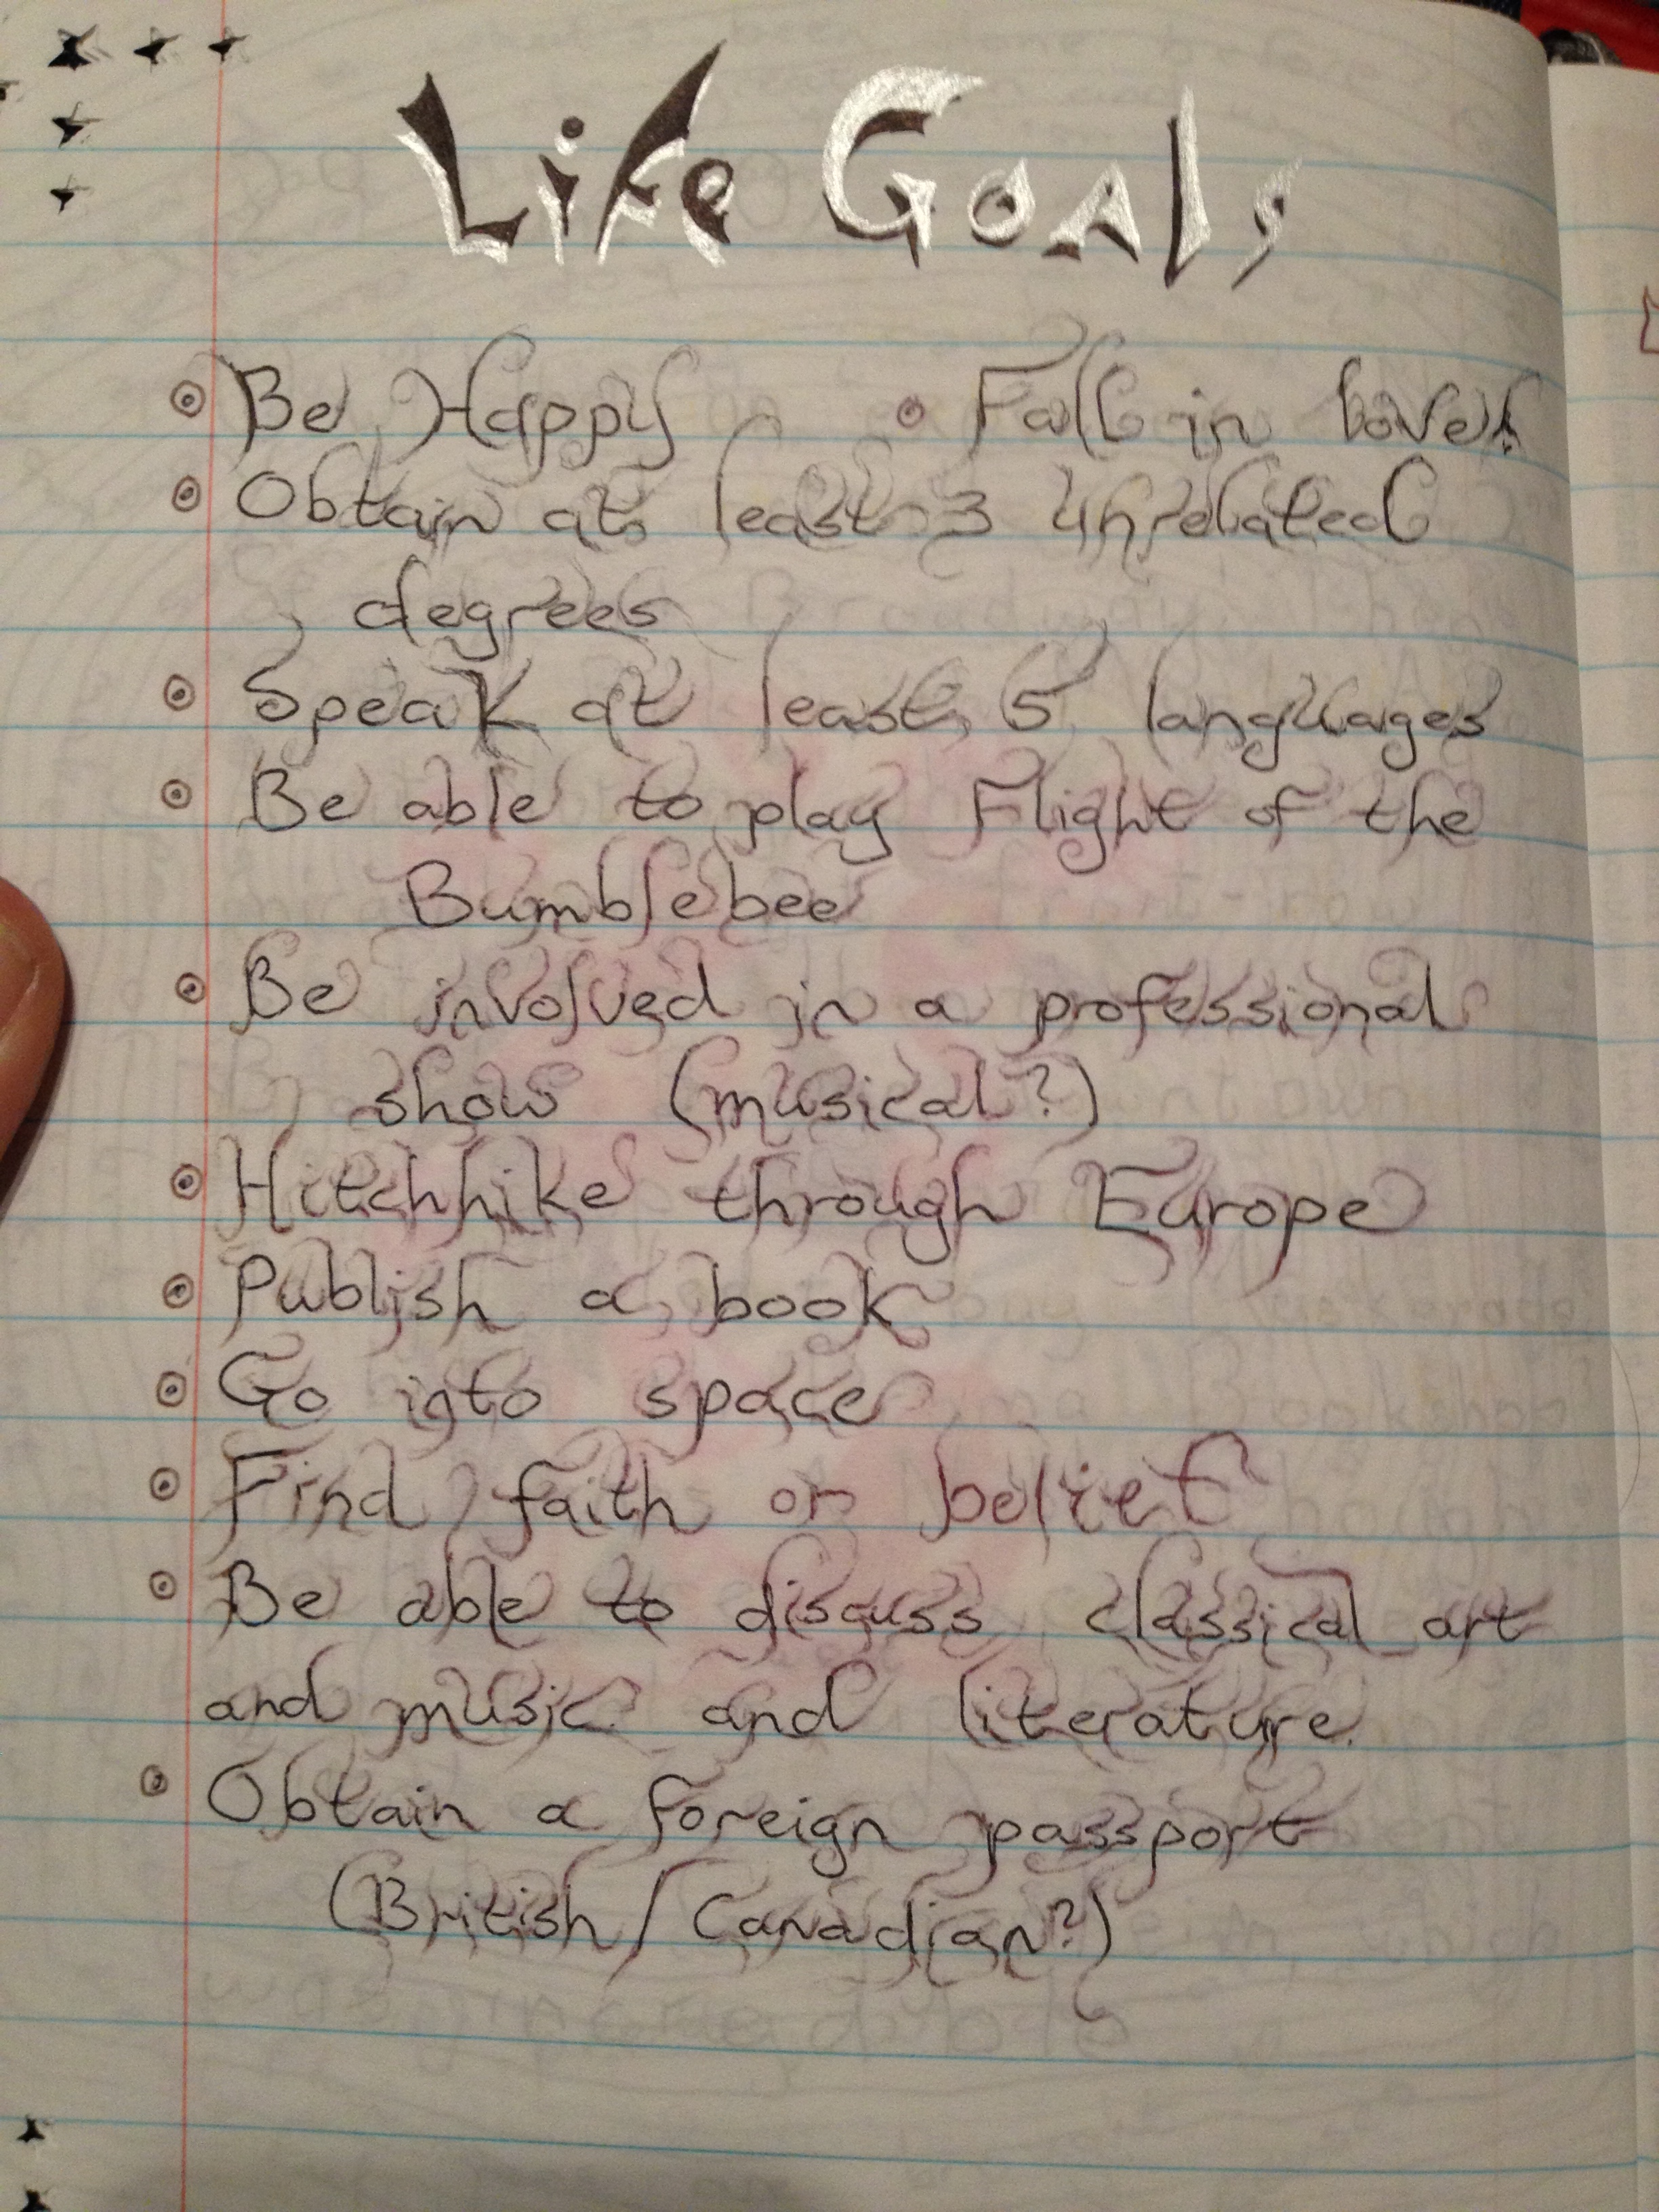 Life Goals
Be Happy
Fall in love!
Obtain at least 3 unrelated
degrees
Speak at least 5 languages
Be able to play Flight of the
Bumblebee
Be involved in a professional
show (musical?)
Hitchhike through Europe
Publish a book
Go into space
Find faith or belief
Be able to discuss classical art
and music and literature.
Obtain a foreign passport
(British/Canadian?)